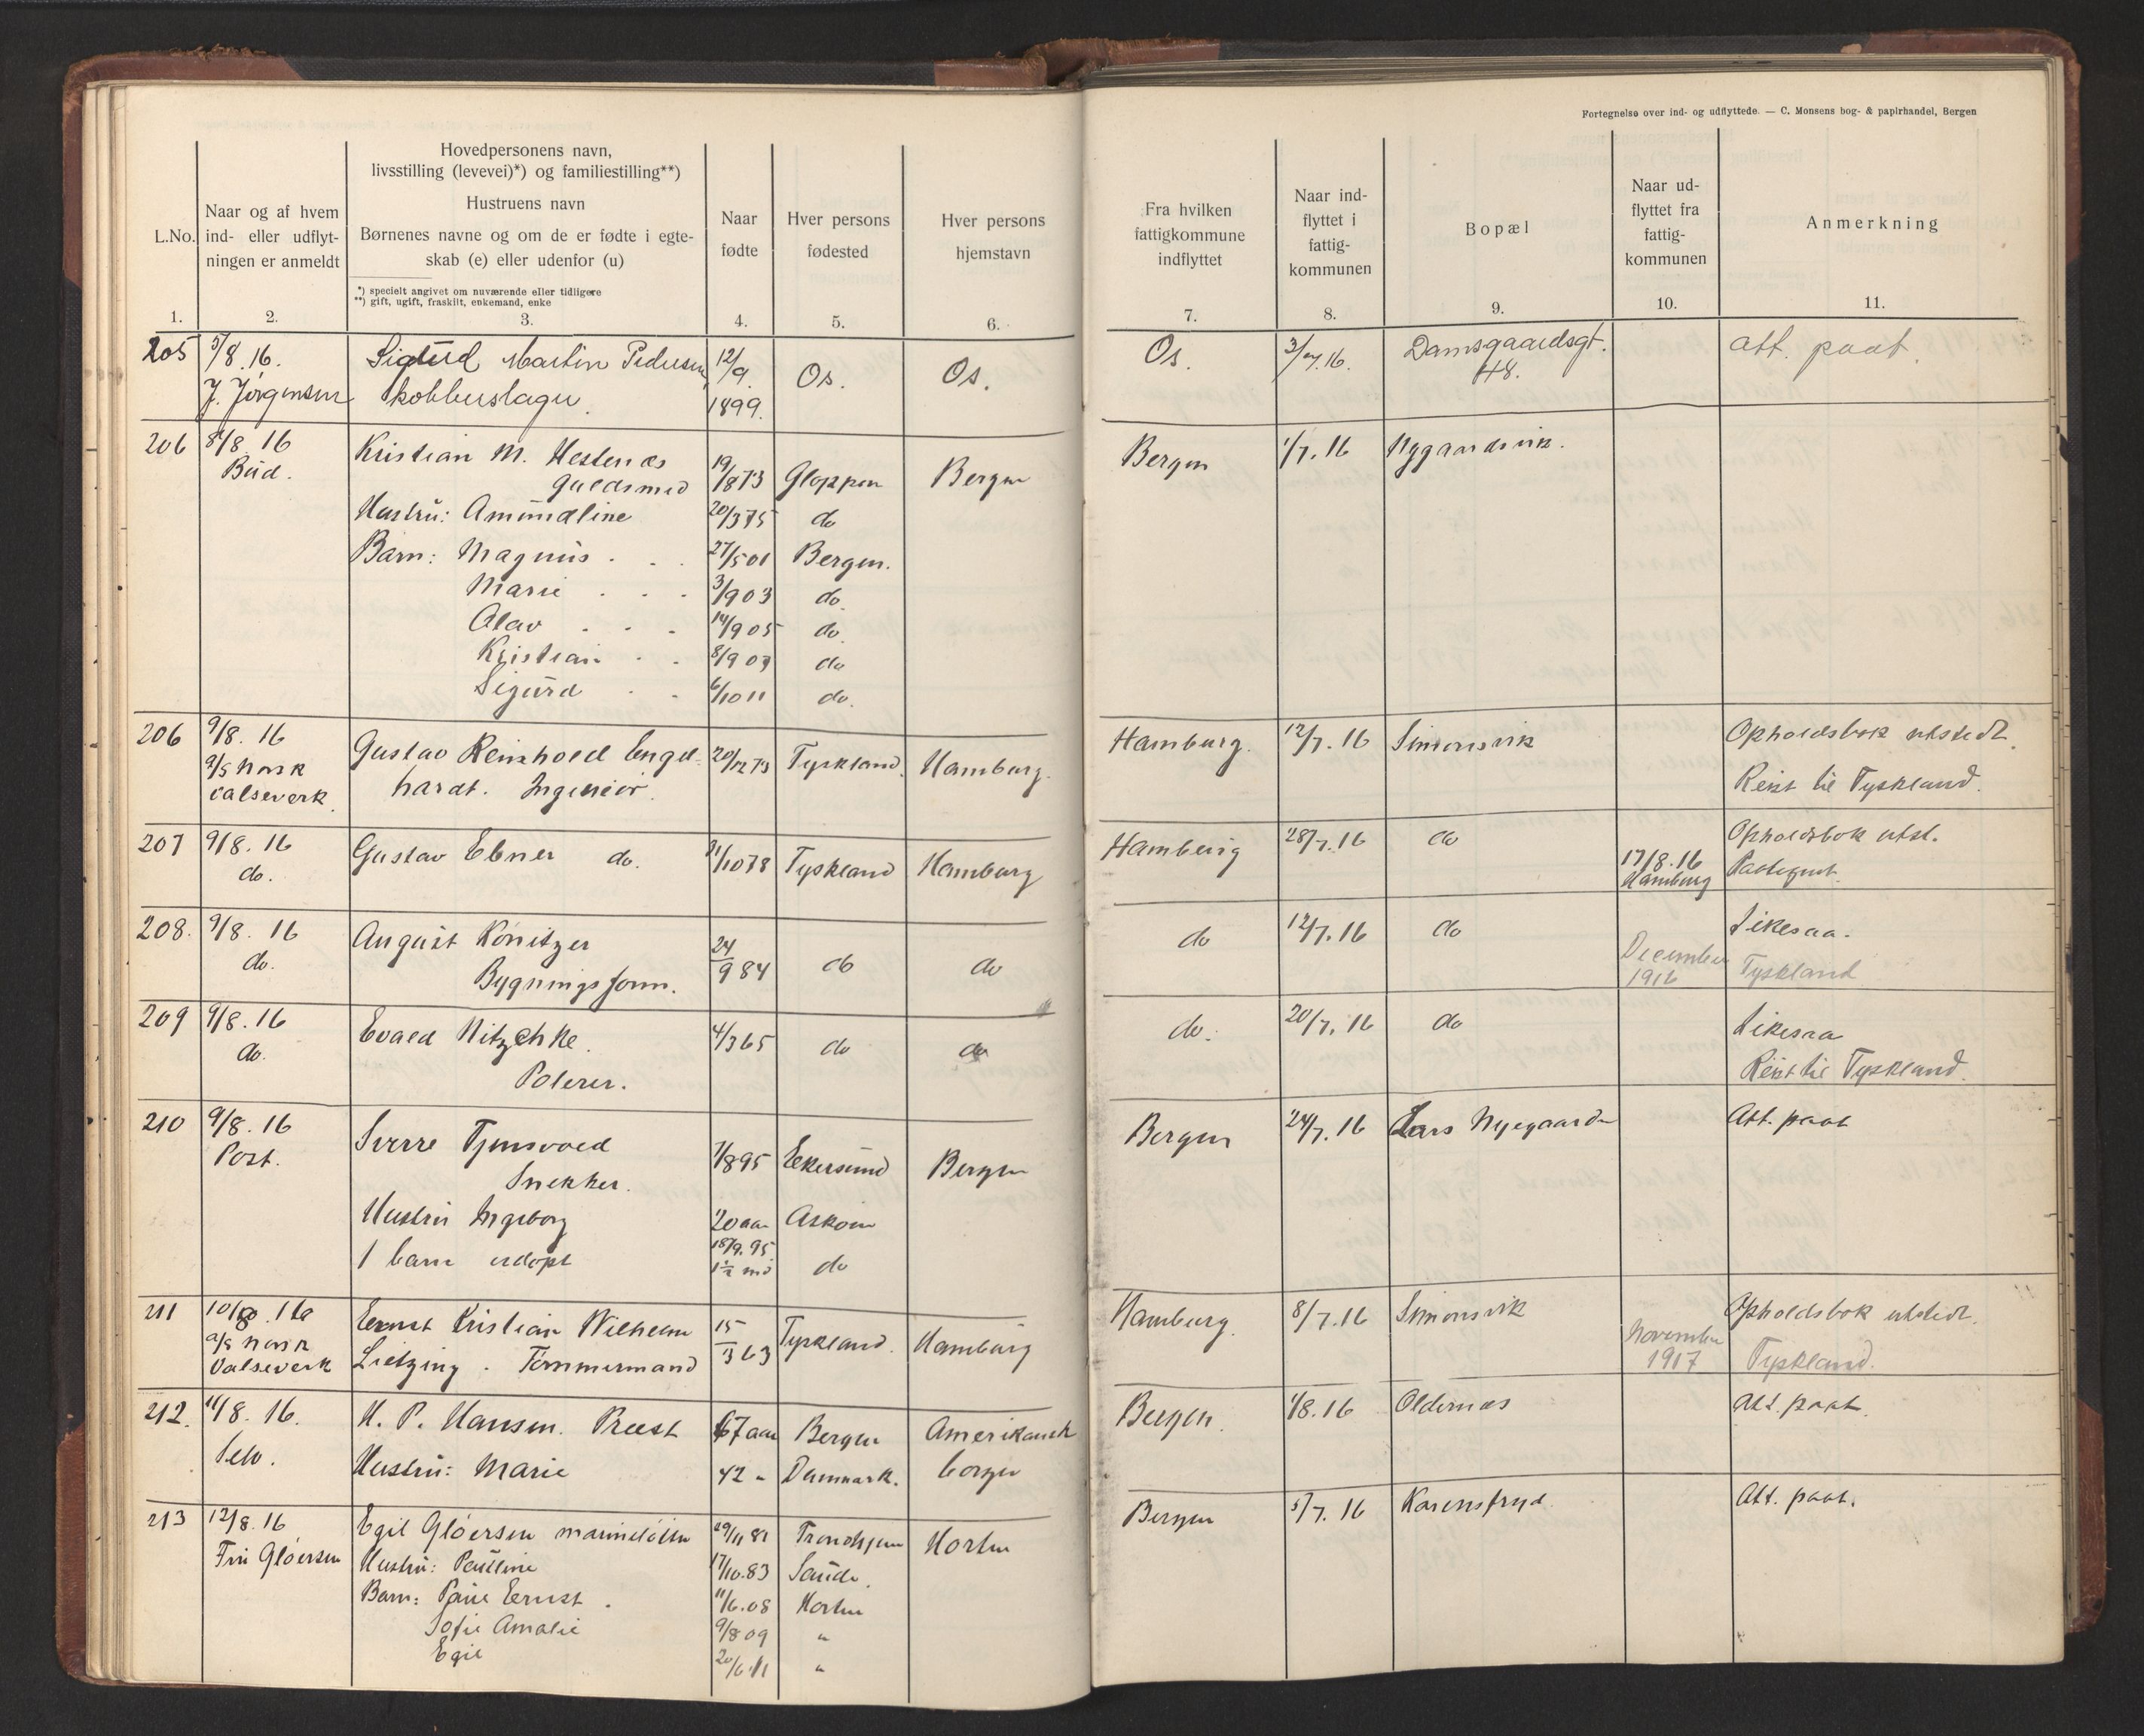 Fortegnelse over ind- og udflyttede. — C. Monsens bog- & papirhandel, Bergen
L.No.
1.
Naar og af hvem
ind- eller udflyt-
ningen er anmeldt
2.
Hovedpersonens navn,
livsstilling (levevei)*) og familiestilling**)
Hustruens navn
Børnenes navne og om de er fødte i egte-
skab (e) eller udenfor (u)
*) specielt angivet om nuværende eller tidligere
**) gift, ugift, fraskilt, enkemand, enke
3.
Naar
fødte
4.
Hver persons
fødested
5.
Hver persons
hjemstavn
6.
Fra hvilken
fattigkommune
indflyttet
7.
Naar ind-
flyttet i
fattig-
kommunen
8.
Bopæl
9.
Naar ud-
flyttet fra
fattig-
kommunen
10.
Anmerkning
11.
205 5/8.16. Sigurd Martin Pedersen 12/9. Os. Os. Os. 3/7.16. Damsgaardsgt. att. paat.
J. Jørgensen kobberslager. 1899. 48.
206 8/8.16 Kristian M. Hestenæs 19/873 Gloppen Bergen Bergen 1/7.16 Nygaardsvik.
Bud. Guldsmed
Hustru: Amundline 20/375 do
Barn: Magnus . . 27/501 Bergen.
Marie . . . 3/903 do
Olav . . . 14/905 do
Kristian . . 8/907 do
Sigurd . . 6/1011 do.
206 9/8.16 Gustav Reinhold Engel- 20/1273 Tyskland. Hamburg. Hamburg. 12/7.16 Simonsvik Opholdsbok utstedt.
a/s norsk hardt. Ingeniør. Reist til Tyskland.
valseverk.
207 9/8.16 Gustav Ebner do. 21/1078 Tyskland Hamburg Hamburg 28/7.16 do 17/8.16 Opholdsbok utst.
do. Hamburg
208. 9/8.16 August Konitzer 24/984 do do do 12/7.16 do December Likesaa.
do. Bygningsform. 1916 Tyskland
209 9/8.16 Evald Nitzchke. 4/365 do do do. 20/7.16 do Likesaa
do. Polerer. Reist til Tyskland.
210 9/8.16 Sverre Tjensvold 7/895 Ekersund Bergen Bergen 24/7.16 Lars Nygaard Att. paat
Post. Snekker.
Hustru Ingeborg 20 aar Askøin
18/9.95
1 barn udøpt 1½ md do
211 10/8.16 Ernst Kristian Wilhelm 15/363 Tyskland. Hamburg Hamburg. 8/7.16 Simonsvik November Opholdsbok utstedt.
a/s norsk Lietzing. Tømmermand 1917 Tyskland.
Valseverk
212. 11/8.16. H. P. Hansen. Prest 67 aar Bergen Amerikansk Bergen. 1/8.16 Oldernæs Att. paat.
Selv. Hustru: Marie 42 " Danmark. borger
213 12/8.16 Egil Gløersen marineløitn 29/1181 Trondhjem Horten Bergen 5/7.16 Karensfryd. Att. paat.
Fru Gløersen Hustru: Pauline 17/10.83 Sande.
Barn: Ernst . 11/6.08 Horten
Sofie Amalie 9/8 09 "
Egil 20/6.11 "